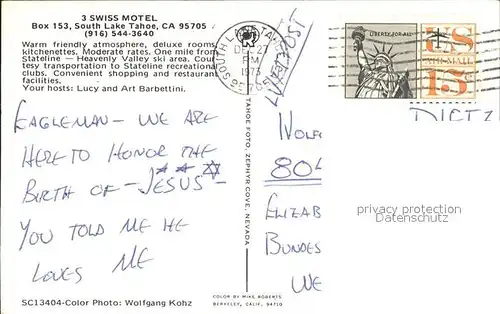 3 SWISS MOTEL
Box 153, South Lake Tahoe, CA 95705
(916) 544-3640
Warm friendly atmosphere, deluxe rooms,
kitchenettes. Moderate rates. One mile from
Stateline — Heavenly Valley ski area. Cour
tesy transportation to Stateline recreational
clubs. Convenient shopping and restaurant
facilities.
Your hosts: Lucy and Art Barbettini.
EAGLEMAN - WE ARE
HERE TO HONOR THE
BIRTH OF - JESUS -
YOU TOLD ME HE
LOVES ME
SC13404-Color Photo: Wolfgang Kohz
SOUTH LAKE TAHOE
DEC 27
PM
1973
TAHOE FOTO, ZEPHYR COVE, NEVADA
COLOR BY MIKE ROBERTS
BERKELEY, CALIF. 94710
LIBERTY FOR ALL
US
AIR MAIL
15
DIETZ
WOLF
804
ELIZAB
BUNDES
WE
privacy protection
Datenschutz